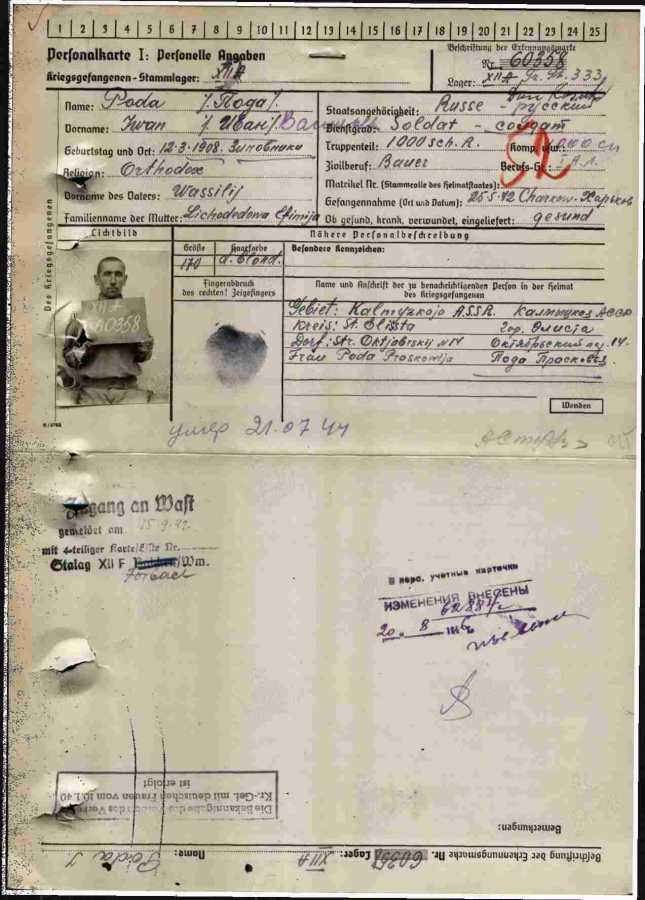 1 2 3 4 5 6 7 8 9 10 11 12 13 14 15 16 17 18 19 20 21 22 23 24 25
Personalkarte I: Personelle Angaben
Kriegsgefangenen-Stammlager: XII A
Beschriftung der Erkennungsmarke
Nr. 60358
Lager: XII A 333
Name: Poda /Пода/
Vorname: Iwan / Иван/
Geburtstag und Ort: 12.3.1908. Зиновники
Religion: Orthodox
Vorname des Vaters: Wassilij
Familienname der Mutter: Lichodedowa Efimija
Staatsangehörigkeit: Russe - русский
Dienstgrad: Soldat - солдат
Truppenteil: 1000 sch. R. Komp. usw.:
Zivilberuf: Bauer Berufs-Gr.:
Matrikel Nr. (Stammrolle des Heimatstaates):
Gefangennahme (Ort und Datum): 25.5.42 Charkow - Харьков
Ob gesund, krank, verwundet, eingeliefert: gesund
Des Kriegsgefangenen
Lichtbild
XII A
60358
Nähere Personalbeschreibung
Größe Haarfarbe Besondere Kennzeichen:
170 d. blond.
Fingerabdruck
des rechten! Zeigefingers
Name und Anschrift der zu benachrichtigenden Person in der Heimat
des Kriegsgefangenen
Gebiet: Kalmyzkaja ASSR. Калмыцкая АССР
Kreis: St. Elista гор. Элиста
Dorf: Str. Oktjabrskij N 14 Октябрьский 14.
Frau Poda Proskowija Пода Прасковья.
Wenden
умер 21.07 44
Zugang an Wast
gemeldet am 15.9.42
mit 4-teiliger Karte/Liste Nr.
Stalag XII F /Wm.
Forbach
В перс. учетные карточки
ИЗМЕНЕНИЯ ВНЕСЕНЫ
20. 8 1946
Die Bekanntgabe des Verbots
Kr.-Gef. mit deutschen Frauen vom 10.1.40
ist erfolgt
Bemerkungen:
Name: Poda J
Beschriftung der Erkennungsmarke Nr. 60358 Lager: XII A